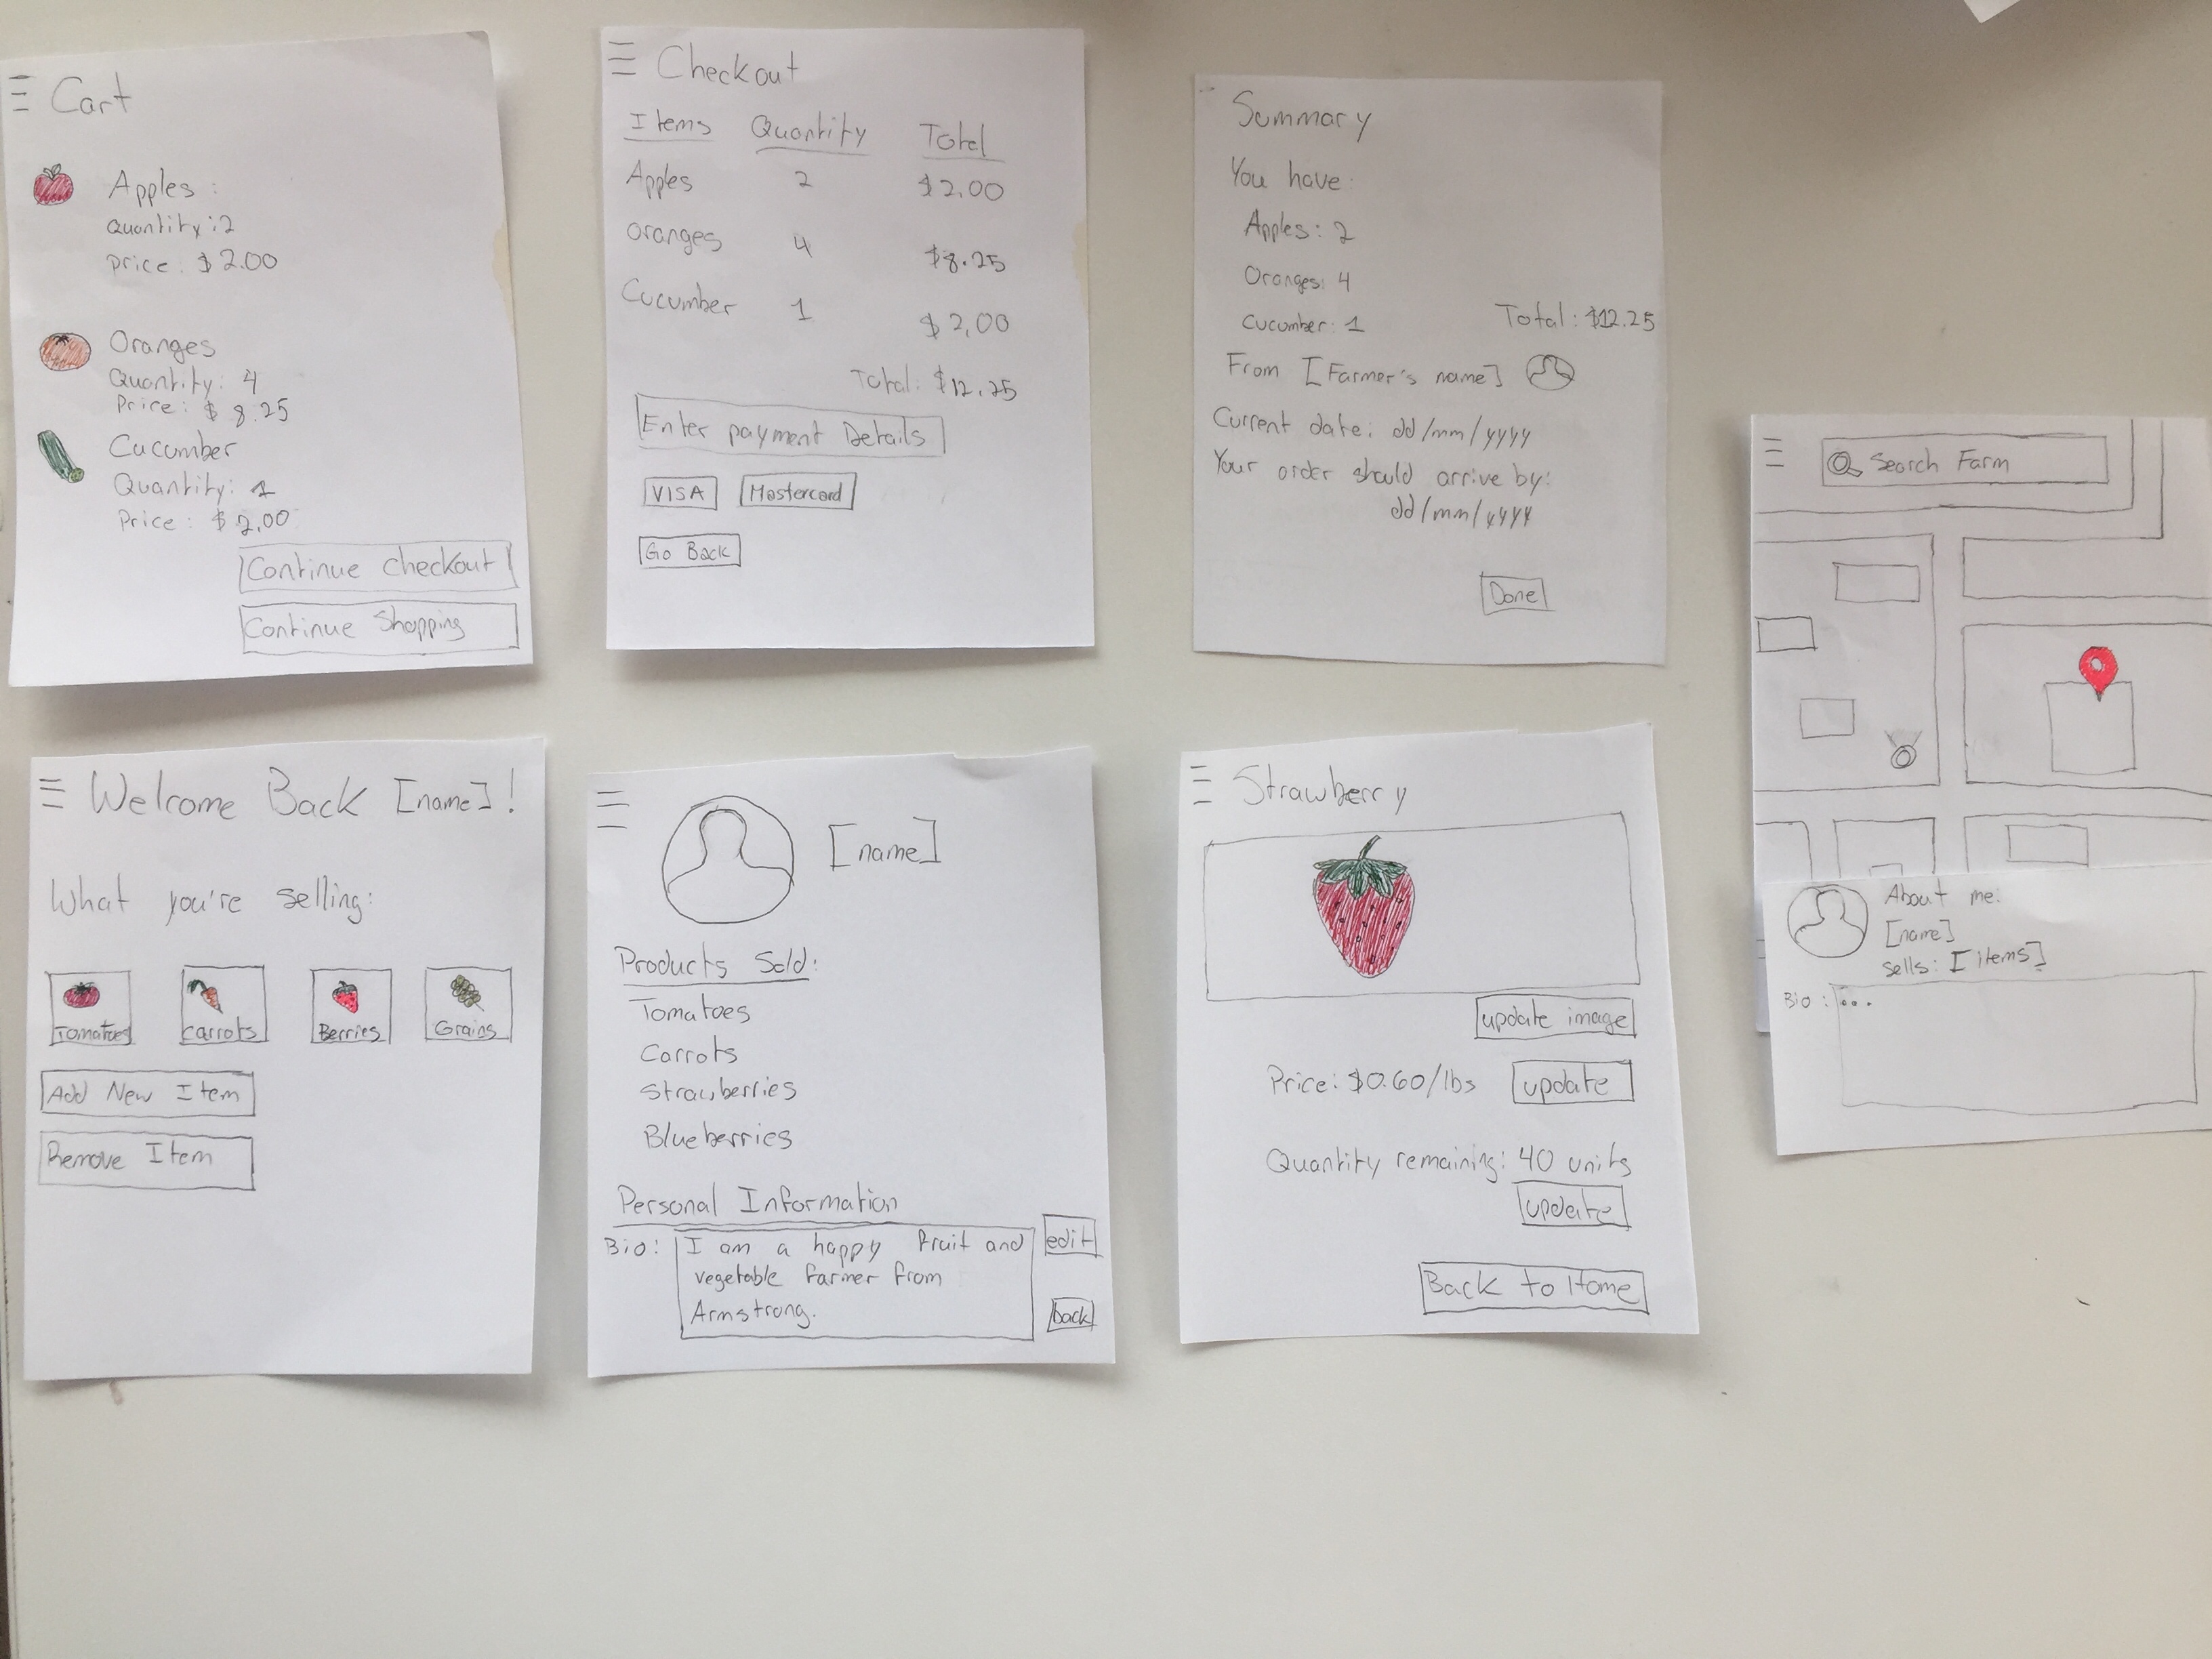 Cart
Apples :
Quantity : 2
Price : $ 2.00
Oranges
Quantity: 4
Price: $ 8.25
Cucumber
Quantity: 1
Price : $ 2.00
Continue checkout
Continue Shopping
Checkout
Items Quantity Total
Apples 2 $2.00
Oranges 4 $8.25
Cucumber 1 $2.00
Total: $12.25
Enter payment Details
VISA Mastercard
Go Back
Summary
You have:
Apples: 2
Oranges: 4
Cucumber: 1
Total: $12.25
From [Farmer's name]
Current date: dd/mm/yyyy
Your order should arrive by:
dd/mm/yyyy
Done
Search Farm
About me:
[name]
sells: [items]
Bio : ...
Welcome Back [name]!
What you're selling:
Tomatoes Carrots Berries Grains
Add New Item
Remove Item
[name]
Products Sold:
Tomatoes
Carrots
Strawberries
Blueberries
Personal Information
Bio: I am a happy fruit and
vegetable farmer from
Armstrong.
edit
back
Strawberry
update image
Price: $0.60/lbs update
Quantity remaining: 40 units
update
Back to Home